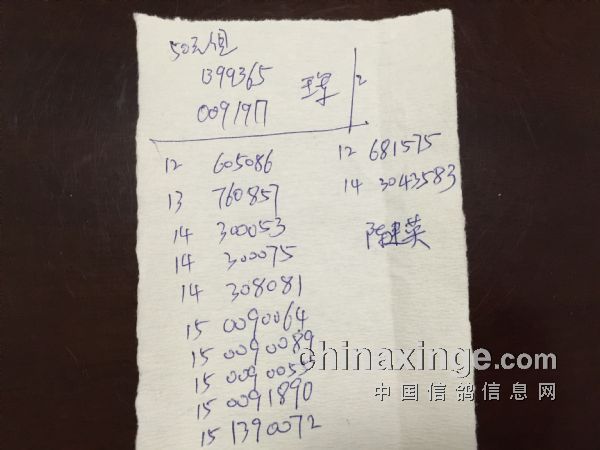 50元组
1399365
0091917
12
12 605086
13 760857
14 300053
14 300075
14 308081
15 0090064
15 0090089
15 0090055
15 0091890
15 1390072
12 681575
14 3043583
陈建英
chinaxinge.com
中国信鸽信息网